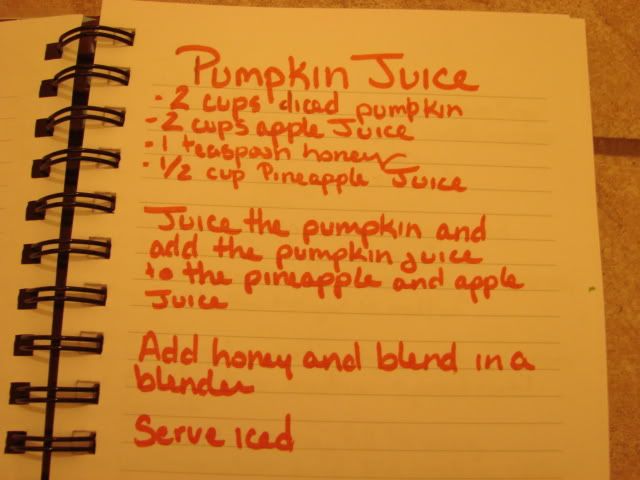 Pumpkin Juice
- 2 cups diced pumpkin
- 2 cups apple Juice
- 1 teaspoon honey
- 1/2 cup Pineapple Juice
Juice the pumpkin and
add the pumpkin juice
to the pineapple and apple
Juice
Add honey and blend in a
blender
Serve iced